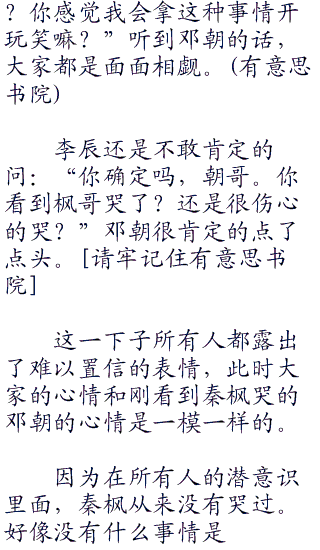 ？你感觉我会拿这种事情开
玩笑嘛？”听到邓朝的话，
大家都是面面相觑。(有意思
书院)
李辰还是不敢肯定的
问：“你确定吗，朝哥。你
看到枫哥哭了？还是很伤心
的哭？”邓朝很肯定的点了
点头。[请牢记住有意思书
院]
这一下子所有人都露出
了难以置信的表情，此时大
家的心情和刚看到秦枫哭的
邓朝的心情是一模一样的。
因为在所有人的潜意识
里面，秦枫从来没有哭过。
好像没有什么事情是